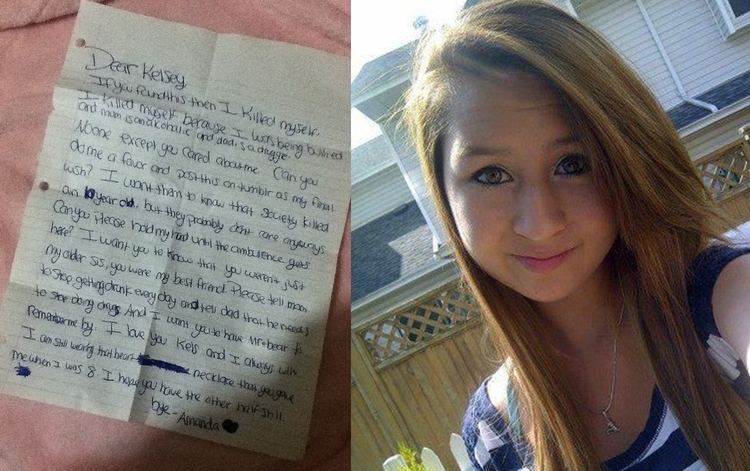 Dear Kelsey,
If you found this then I killed myself.
I killed myself because I was being bullied
and mom is an alcoholic and dad is a druggie.
No one except you cared about me. Can you
do me a favor and post this on tumblr as my final
wish? I want them to know that society killed
an 10 year old. but they probably dont care anyways
Can you please hold my hand until the ambulence gets
here? I want you to know that you weren't just
my older sis, you were my best friend. Please tell mom
to stop getting drunk every day and tell dad that he needs
to stop doing drugs And I want you to have Mr. bear to
remember me by. I love you Kels and I always will.
I am still wearing that heart necklace that you gave
me when I was 8. I hope you have the other half still.
bye-
Amanda
A